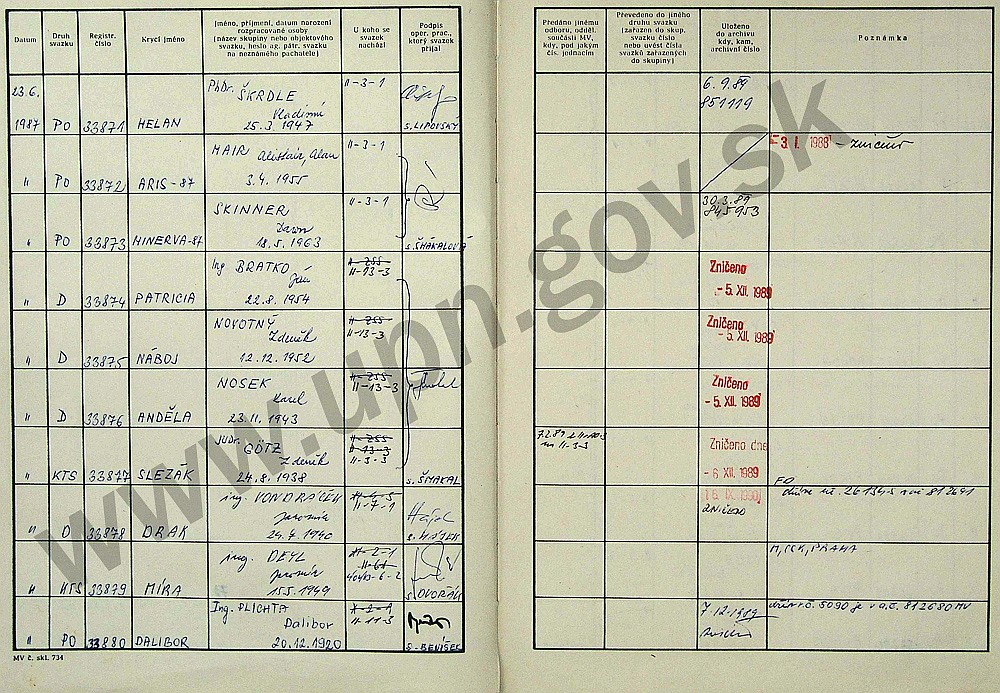 Datum
Druh svazku
Registr. číslo
Krycí jméno
Jméno, příjmení, datum narození
rozpracované osoby
(název skupiny nebo objektového
svazku, heslo ag. pátr. svazku
na neznámého pachatele)
U koho se svazek nachází
Podpis
oper. prac.,
který svazek
přijal
Předáno jinému
odboru, odděl.
součásti MV,
kdy, pod jakým
čís. jednacím
Převedeno do jiného
druhu svazku
(zařazen do skup.
svazku číslo
nebo uvést čísla
svazků zařazených
do skupiny)
Uloženo
do archivu
kdy, kam,
archivní číslo
Poznámka
23.6. PhDr. ŠKRDLE II-3-1 6.9.89
Vladimír 851119
1987 PO 33871 HELAN 25.3.1947 s. LIPOVSKÝ
MAIR Alistair, Alan II-3-1 3. I. 1988 - zničeno
" PO 33872 ARIS-87 3.4.1955
SKINNER II-3-1 30.3.89
Dawn 845953
" PO 33873 MINERVA-87 18.5.1963 s. ŠMÁKALOVÁ
Ing BRATKO II-255 Zničeno
Ján II-13-3
" D 33874 PATRICIA 22.8.1954 - 5. XII. 1989
NOVOTNÝ II-255 Zničeno
Zdeněk II-13-3 - 5. XII. 1989
" D 33875 NÁBOJ 12.12.1952
NOSEK II-255 Zničeno
Karel II-13-3 - 5. XII. 1989
" D 33876 ANDĚLA 23.11.1943
JUDr. GÖTZ II-255 7.2.89 Zničeno dne
Zdeněk II-13-3 na II-3-3
II-3-3 - 6. XII. 1989
" KTS 33877 SLEZÁK 24.8.1938 s. ŠMAKAL
ing. VONDRÁČEK II-7-1 6. IX. 1990
Jaromír ZNIČENO
" D 33878 DRAK 24.4.1940 s. HÁJEK
ing. DEYL II-2-1 M, ČSK, PRAHA
Jaromír II-61
" KTS 33879 MÍRA 15.5.1949 s. DVOŘÁK
Ing. PLICHTA X-2-1 7.12.1989
Dalibor II-11-3
" PO 33880 DALIBOR 20.12.1920 s. BENÍŠEK
MV č. skl. 734
www.upn.gov.sk